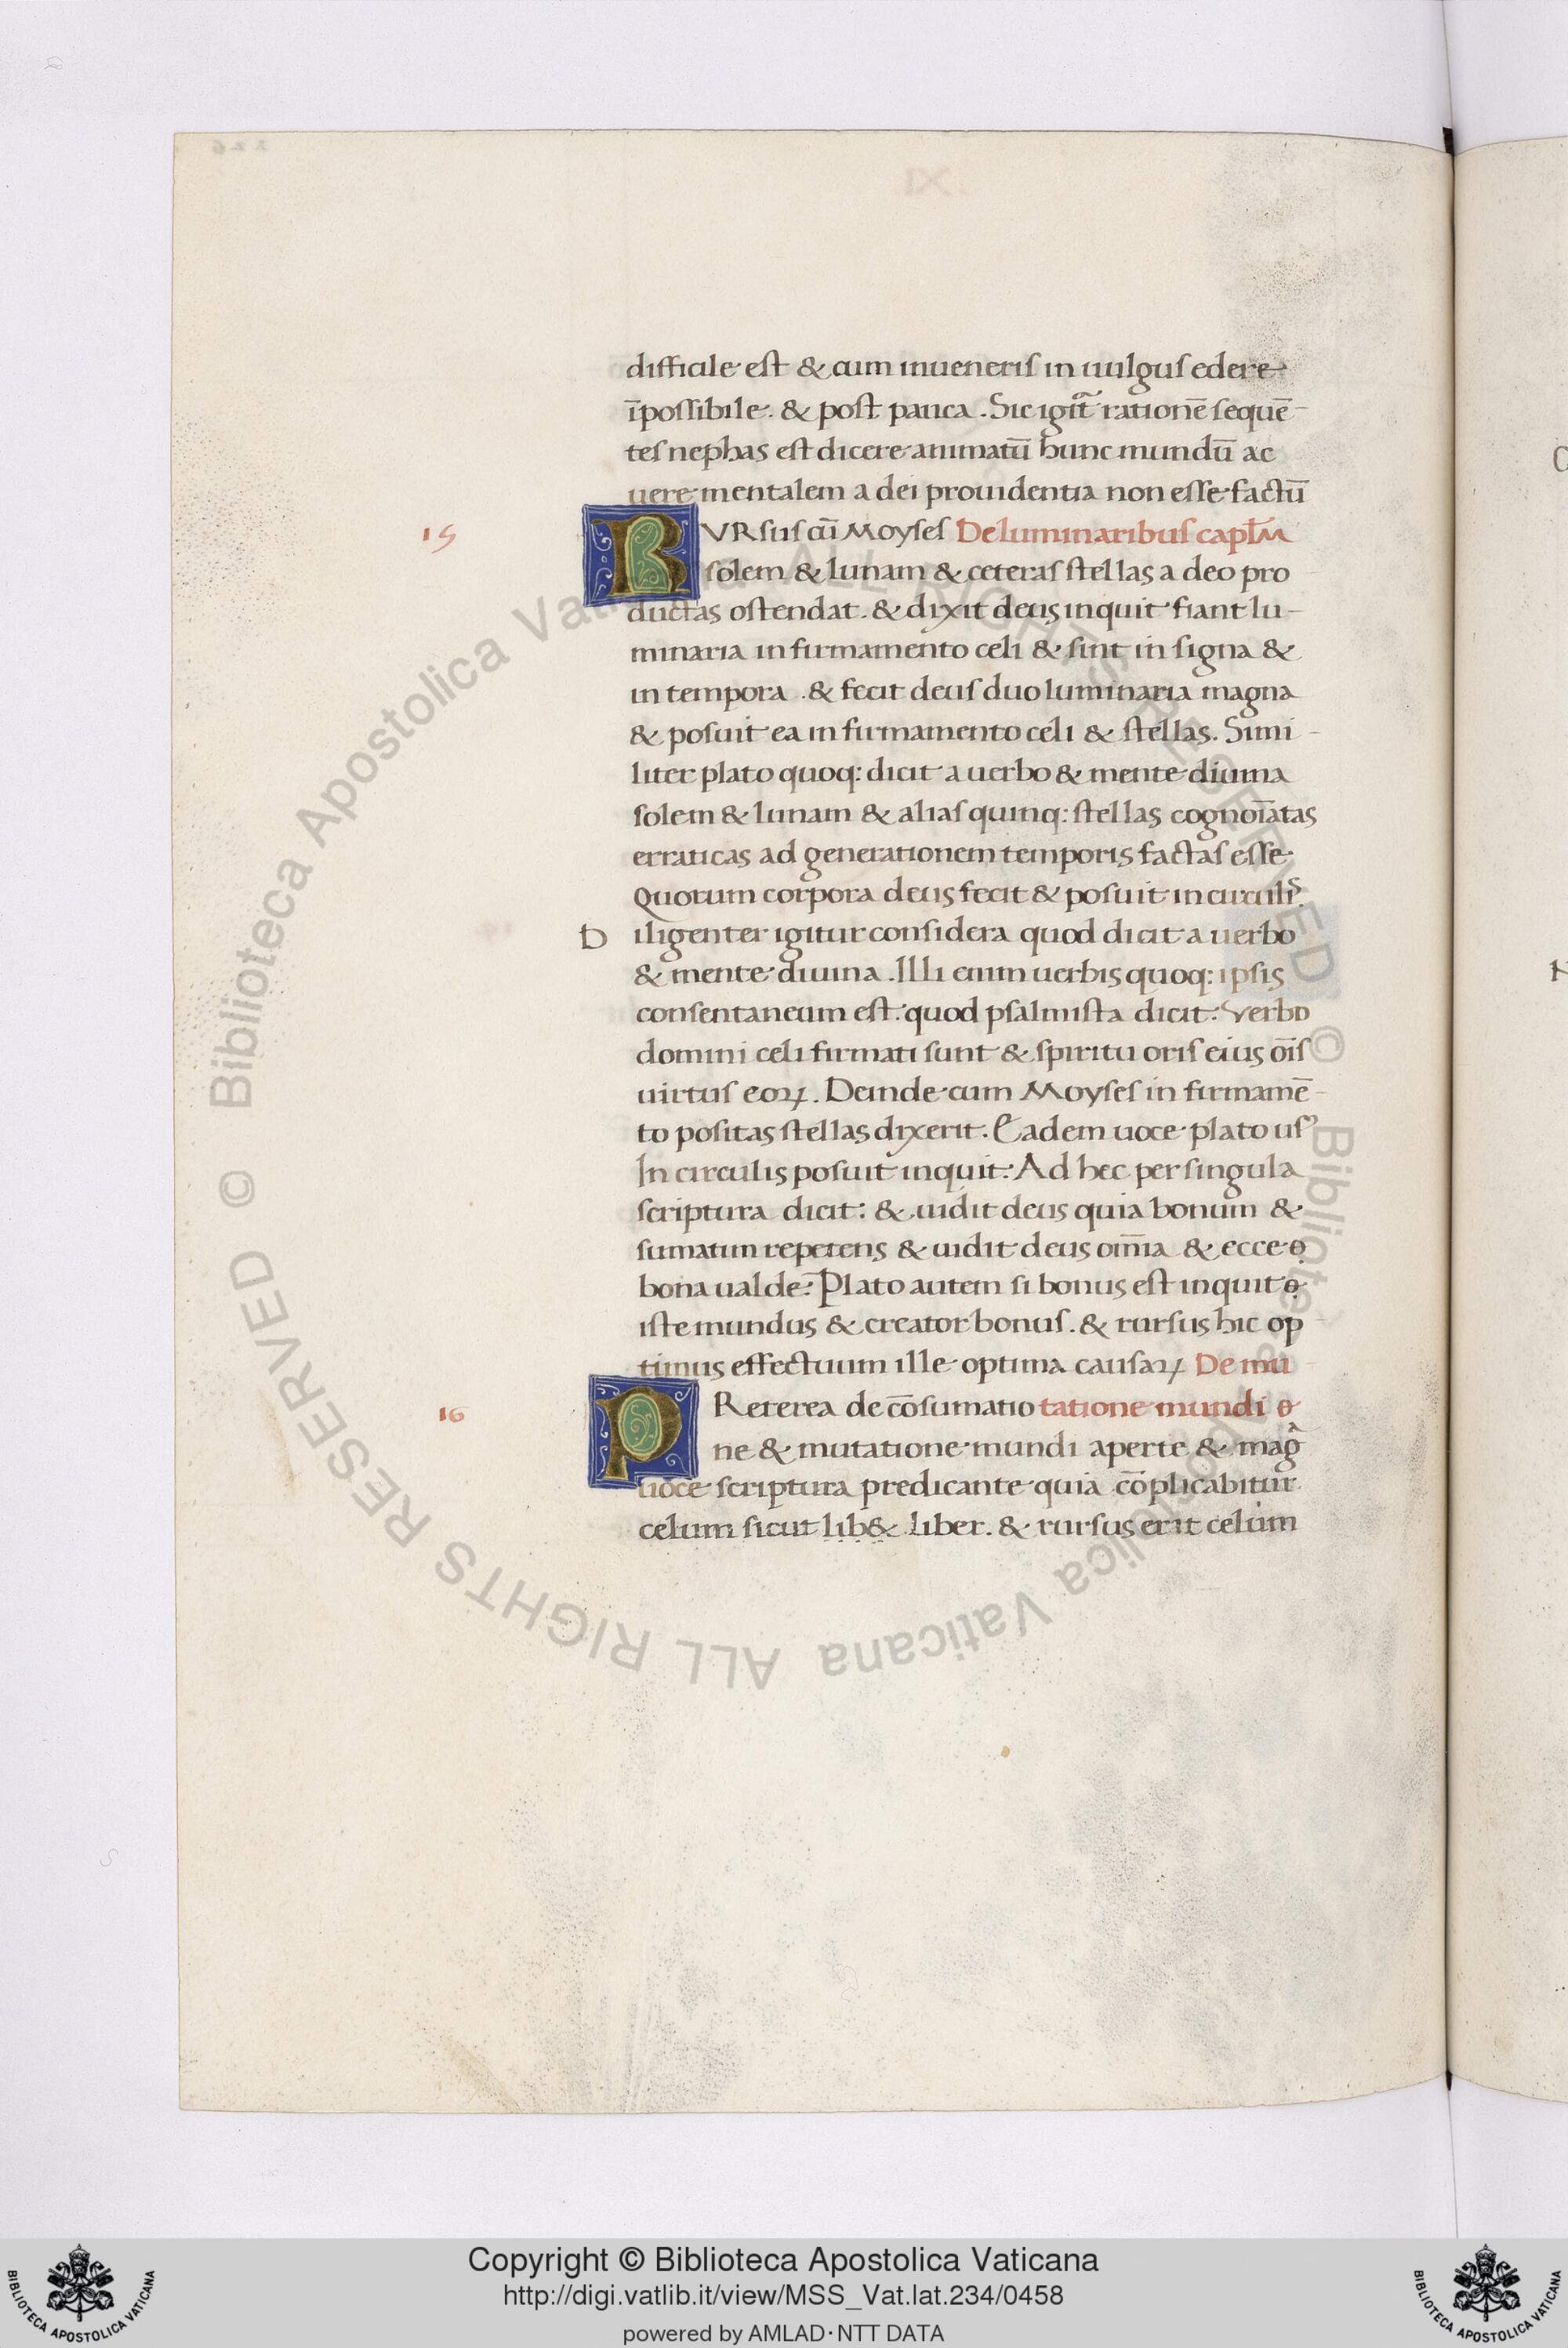 difficile est & cum inueneris in uulgus edere
īpossibile. & post pauca. Sic igit᷑ rationē sequē
tes nephas est dicere animatū hunc mundū ac
uere mentalem a dei prouidentia non esse factū
15 RVRsus cū Moyses De luminaribus capl̄m
solem & lunam & ceteras stellas a deo pro
ductas ostendat. & dixit deus inquit fiant lu-
minaria in firmamento celi & sint in signa &
in tempora. & fecit deus duo luminaria magna
& posuit ea in firmamento celi & stellas. Simi
liter plato quoq: dicit a uerbo & mente diuina
solem & lunam & alias quinq: stellas cognoīatas
erraticas ad generationem temporis factas esse
Quorum corpora deus fecit & posuit in circulis.
Diligenter igitur considera quod dicit a uerbo
& mente diuina. Illi enim uerbis quoq: ipsis
consentaneum est. quod psalmista dicit: Verbo
domini celi firmati sunt & spiritu oris eius oīs
uirtus eoꝝ. Deinde cum Moyses in firmamē
to positas stellas dixerit. Eadem uoce plato usꝰ
In circulis posuit inquit: Ad hec per singula
scriptura dicit: & uidit deus quia bonum &
sumatim repetens & uidit deus om̄ia & ecce
bona ualde: Plato autem si bonus est inquit
iste mundus & creator bonus. & rursus hic op
timus effectuum ille optima causaꝝ De mu
16 PReterea de cōsumatio tatione mundi
ne & mutatione mundi aperte & magᷓ
uoce scriptura predicante quia cōplicabitur
celum sicut lib& liber. & rursus erit celum
Copyright © Biblioteca Apostolica Vaticana
http://digi.vatlib.it/view/MSS_Vat.lat.234/0458
powered by AMLAD·NTT DATA
BIBLIOTECA APOSTOLICA VATICANA
BIBLIOTECA APOSTOLICA VATICANA
© Biblioteca Apostolica Vaticana ALL RIGHTS RESERVED © Biblioteca Apostolica Vaticana ALL RIGHTS RESERVED